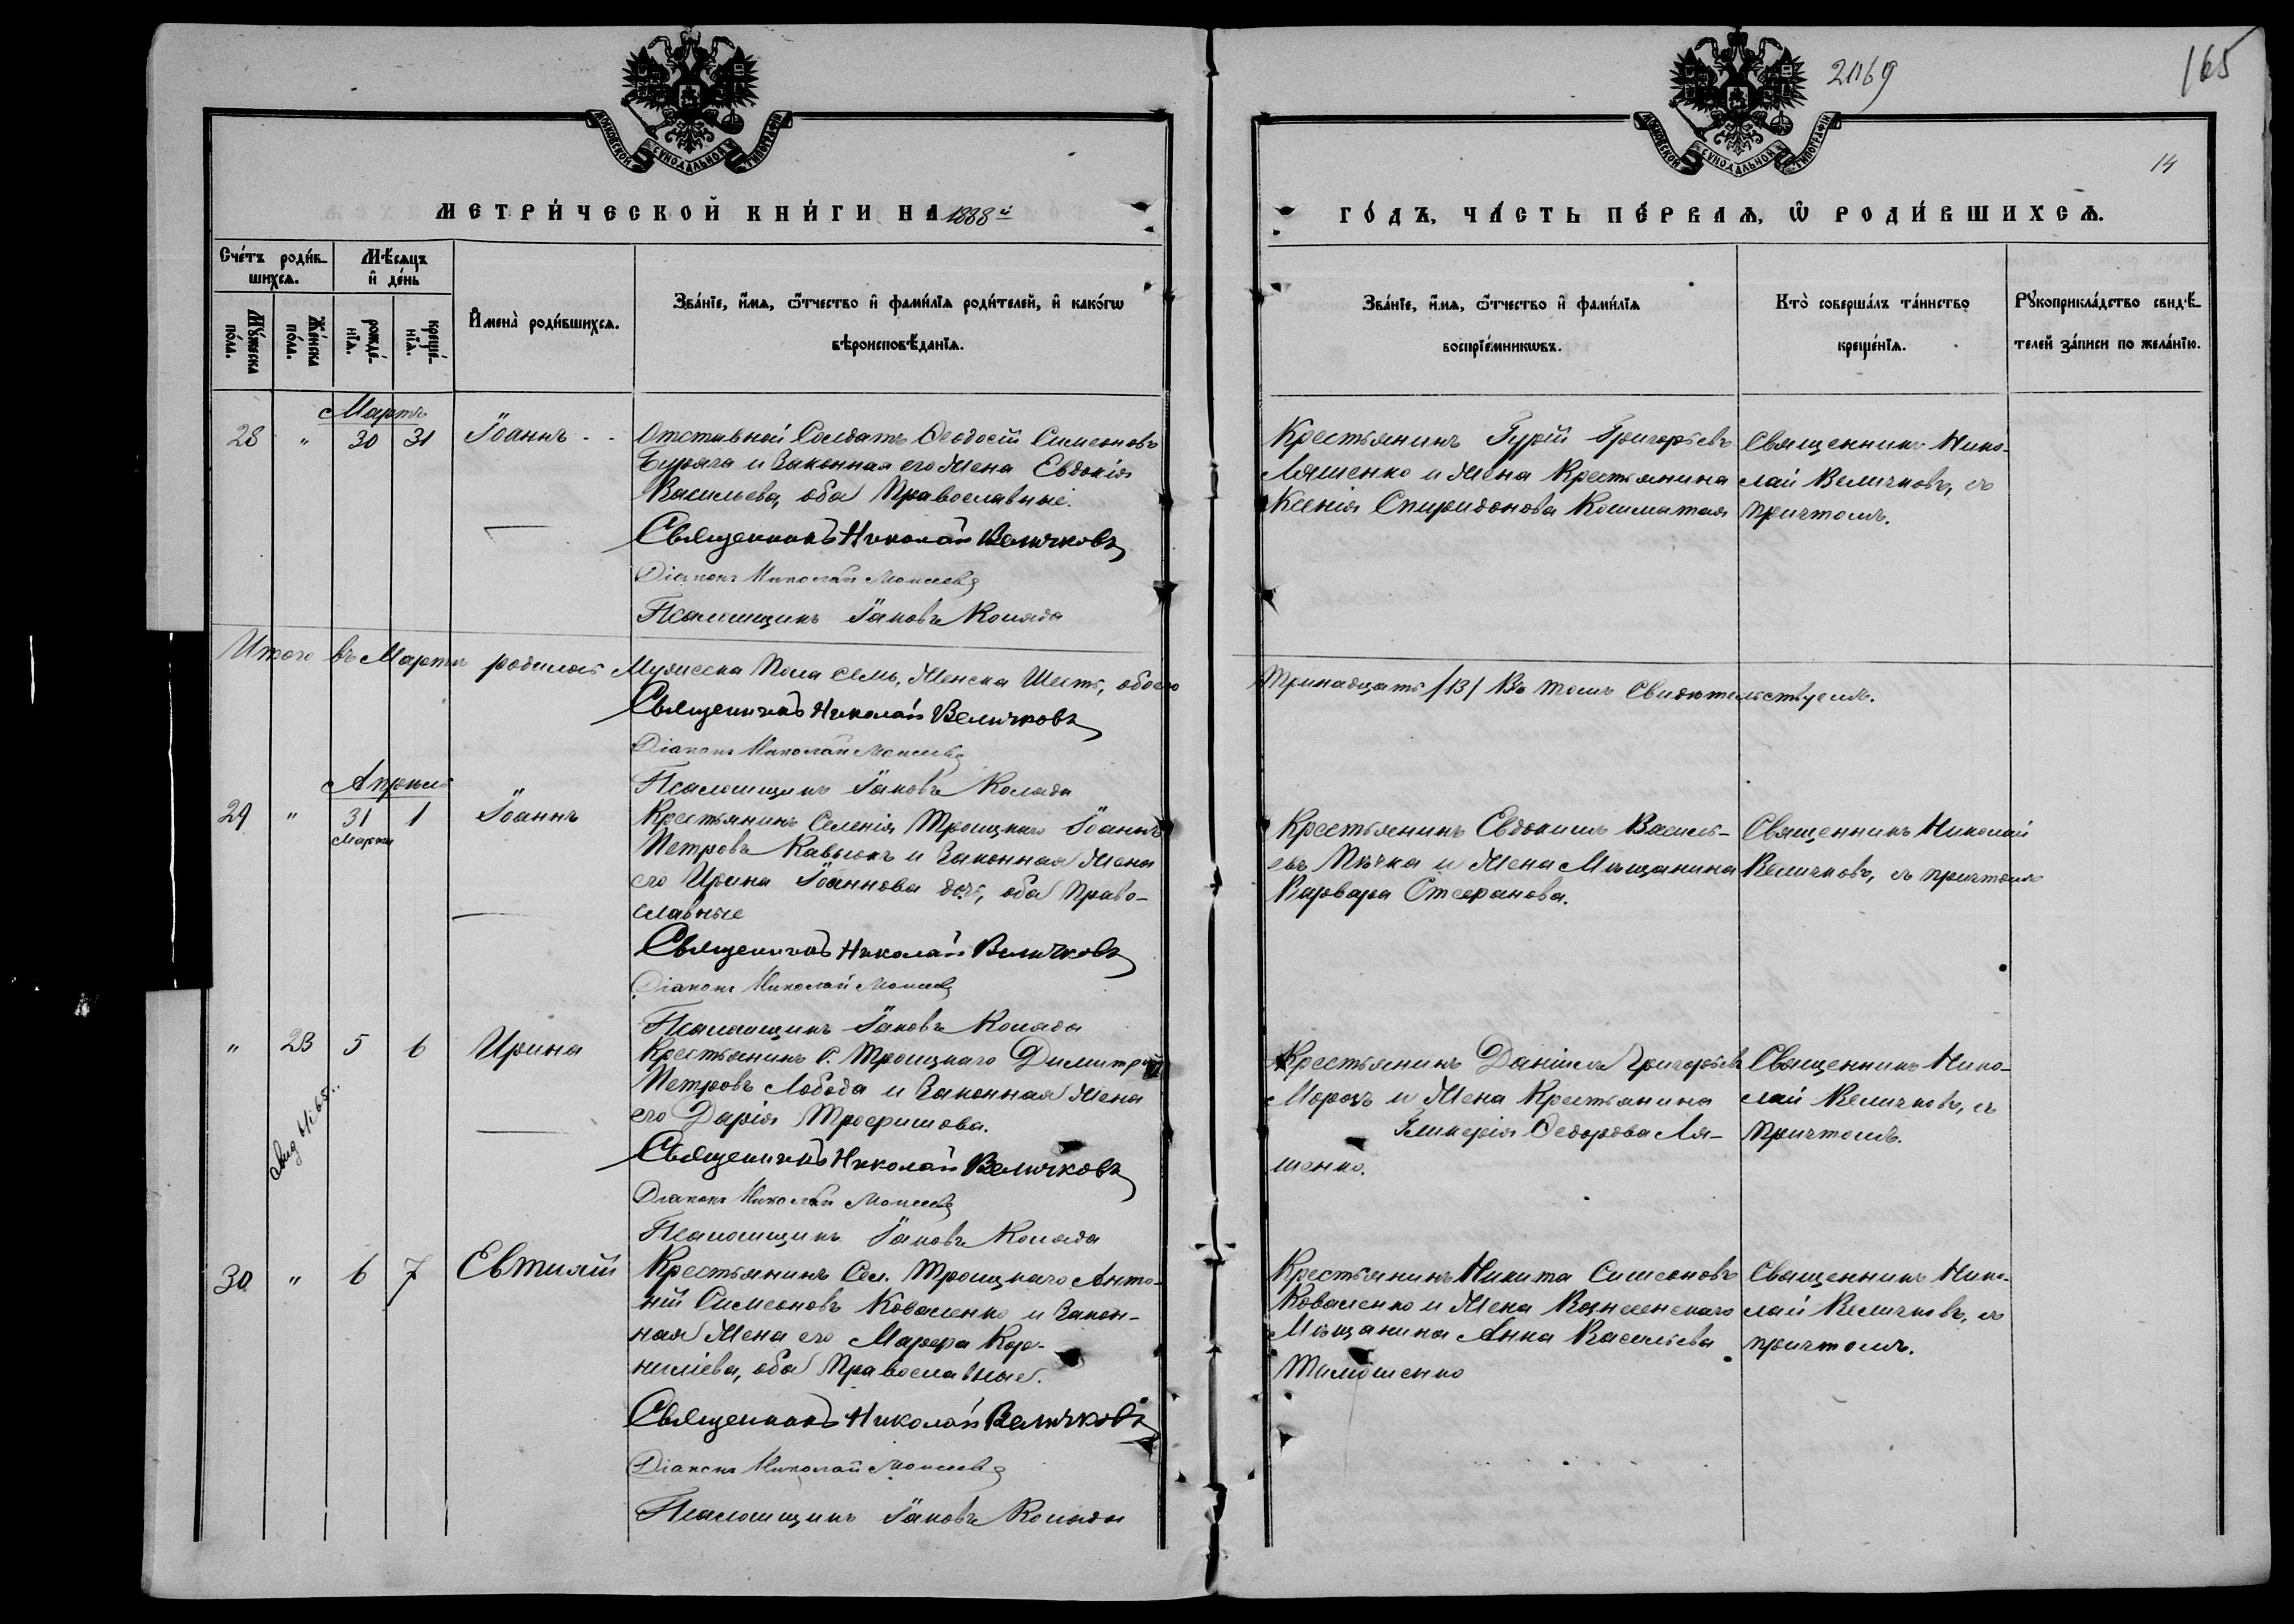 165
2069
14
МОСКОВСКОЙ СУНОДАЛЬНОЙ ТИПОГРАФІИ
МОСКОВСКОЙ СУНОДАЛЬНОЙ ТИПОГРАФІИ
МЕТРИ́ЧЕСКОЙ КНИ́ГИ НА 1888й
ГО́ДЪ, ЧА́СТЬ ПЕ́РВАѦ, Ѡ҆ РОДИ́ВШИХСѦ.
Сче́тъ роди́в-
шихсѧ.
Мѣ́сѧцъ
и҆ де́нь
Мꙋ́жеска
по́ла.
Же́нска
по́ла.
рожде́-
нїѧ.
креще́-
нїѧ.
И҆мена̀ роди́вшихсѧ.
Зва́нїе, и҆́мѧ, ѻ҆́тчество и҆ фами́лїѧ роди́телей, и҆ како́гѡ
вѣроисповѣ́данїѧ.
Зва́нїе, и҆́мѧ, ѻ҆́тчество и҆ фами́лїѧ
воспрїе́мникѡвъ.
Кто̀ соверша́лъ та́инство
креще́нїѧ.
Рꙋкоприкла́дство свидѣ́-
телей за́писи по жела́нїю.
Мартъ
28 " 30 31 Іоаннъ
Отставной Солдатъ Ѳеодосій Симеоновъ
Буряча и Законная его Жена Евдокія
Васильева, оба Православные.
Священникъ Николай Величковъ
Діаконъ Николай Моисеевъ
Псаломщикъ Іаковъ Коляда
Крестьянинъ Гурій Григорьевъ
Ляшенко и Жена Крестьянина
Ксенія Спиридонова Кошматая
Священникъ Нико-
лай Величковъ, съ
причтомъ.
Итого въ Мартѣ родилось Мужеска Пола Семь, Женска Шесть, обоего
Тринадцать /13/ Въ томъ Свидѣтельствуемъ.
Священникъ Николай Величковъ
Діаконъ Николай Моисеевъ
Псаломщикъ Іаковъ Коляда
Апрѣль
29 " 31 1 Іоаннъ
Марта
Крестьянинъ Селенія Троицкаго Іоаннъ
Петровъ Кавьюкъ и Законная Жена
его Ирина Іоаннова дочь, оба Право-
славные
Священникъ Николай Величковъ
Діаконъ Николай Моисеевъ
Псаломщикъ Іаковъ Коляда
Крестьянинъ Евдокимъ Василь-
евъ Пѣчка и Жена Мѣщанина
Варвара Стефанова.
Священникъ Николай
Величковъ, съ причтомъ
" 23 5 6 Ирина
Крестьянинъ С. Троицкаго Димитрій
Петровъ Лобода и Законная Жена
его Дарія Трофимова.
Священникъ Николай Величковъ
Діаконъ Николай Моисеевъ
Псаломщикъ Іаковъ Коляда
Крестьянинъ Даніилъ Григорьевъ
Морозъ и Жена Крестьянина
Гликерія Ѳедорова Ля-
шенко.
Священникъ Нико-
лай Величковъ, съ
причтомъ.
30 " 6 7 Евтихій
Крестьянинъ Сел. Троицкаго Анто-
ній Симеоновъ Коваленко и Закон-
ная Жена его Марфа Кор-
нилiева, оба Православные.
Священникъ Николай Величковъ
Діаконъ Николай Моисеевъ
Псаломщикъ Іаковъ Коляда
Крестьянинъ Никита Симеоновъ
Коваленко и Жена Вознесенскаго
Мѣщанина Анна Васильева
Тимошенко
Священникъ Нико-
лай Величковъ, съ
причтомъ.